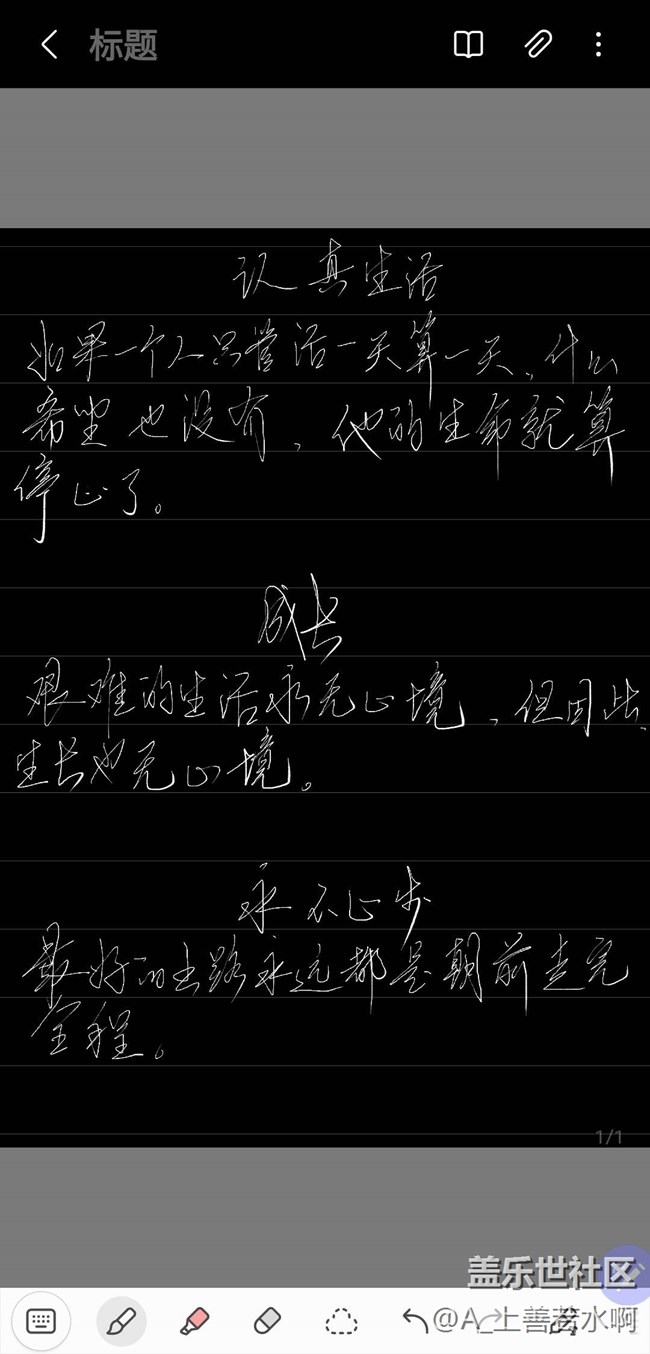 标题
认真生活
如果一个人只管活一天算一天、什么
希望也没有、他的生命就算
停止了。
成长
艰难的生活永无止境、但因此、
生长也无止境。
永不止步
最好的出路永远都是朝前走完
全程。
1/1
盖乐世社区
@A_上善若水啊